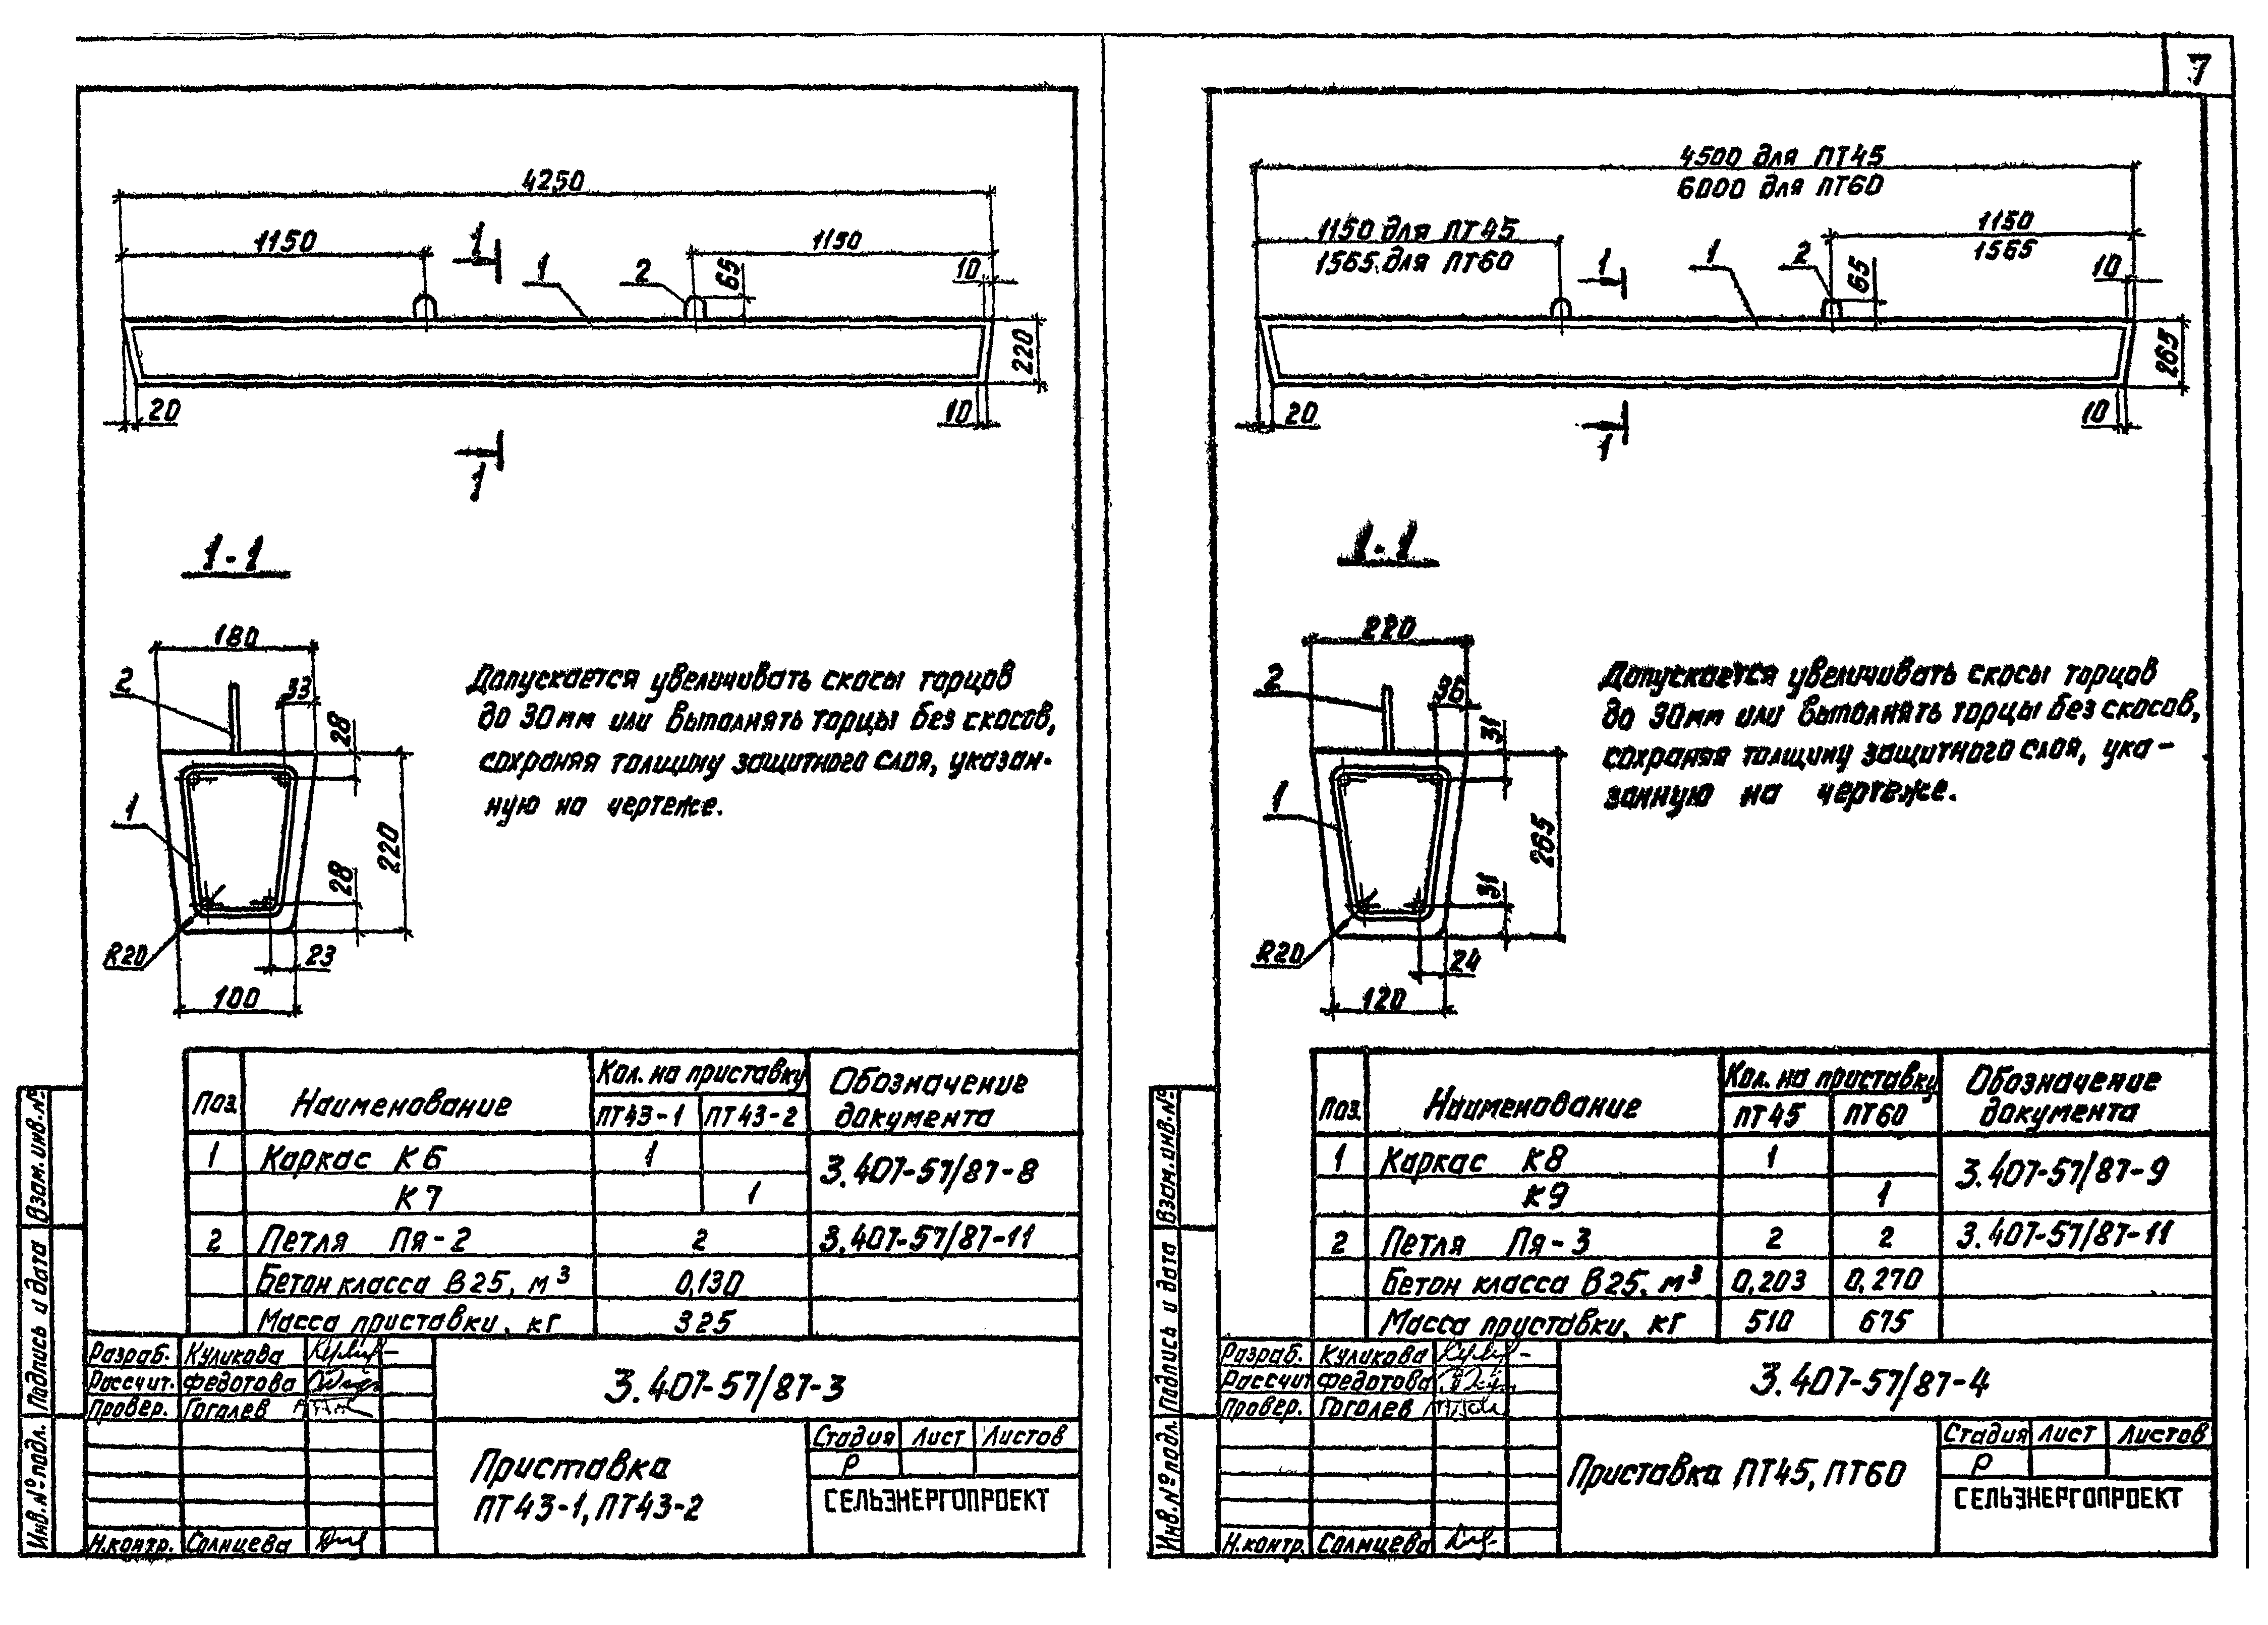 7
4250
1150
1
1
2
1150
65
10
220
20
10
1
1-1
180
2
33
28
1
220
28
R20
23
100
Допускается увеличивать скосы торцов
до 30мм или выполнять торцы без скосов,
сохраняя толщину защитного слоя, указан-
ную на чертеже.
Поз. Наименование Кол. на приставку Обозначение документа
ПТ43-1 ПТ43-2
1 Каркас К6 1 3.407-57/87-8
К7 1
2 Петля Пя-2 2 3.407-57/87-11
Бетон класса В25, м³ 0,130
Масса приставки, кг 325
Разраб. Куликова
Рассчит. Федотова
Провер. Гоголев
Н.контр. Солнцева
3.407-57/87-3
Приставка
ПТ43-1, ПТ43-2
Стадия Лист Листов
Р
СЕЛЬЭНЕРГОПРОЕКТ
Взам.инв.№
Подпись и дата
Инв.№ подл.
4500 для ПТ45
6000 для ПТ60
1150 для ПТ45
1565 для ПТ60
1
1
2
1150
1565
65
10
265
20
10
1
1-1
220
2
36
31
1
265
31
R20
24
120
Допускается увеличивать скосы торцов
до 30мм или выполнять торцы без скосов,
сохраняя толщину защитного слоя, ука-
занную на чертеже.
Поз. Наименование Кол. на приставку Обозначение документа
ПТ45 ПТ60
1 Каркас К8 1 3.407-57/87-9
К9 1
2 Петля Пя-3 2 2 3.407-57/87-11
Бетон класса В25, м³ 0,203 0,270
Масса приставки, кг 510 675
Разраб. Куликова
Рассчит. Федотова
Провер. Гоголев
Н.контр. Солнцева
3.407-57/87-4
Приставка ПТ45, ПТ60
Стадия Лист Листов
Р
СЕЛЬЭНЕРГОПРОЕКТ
Взам.инв.№
Подпись и дата
Инв.№ подл.